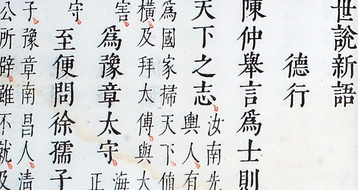 世說新語
德行
陳仲舉言爲士則
天下之志
汝南先
輿人有
爲國家掃天下値
橫及拜太傅與大
害
爲豫章太守
海
正
守
至便問徐孺子
子豫章南昌人清
公所辟雖不就及